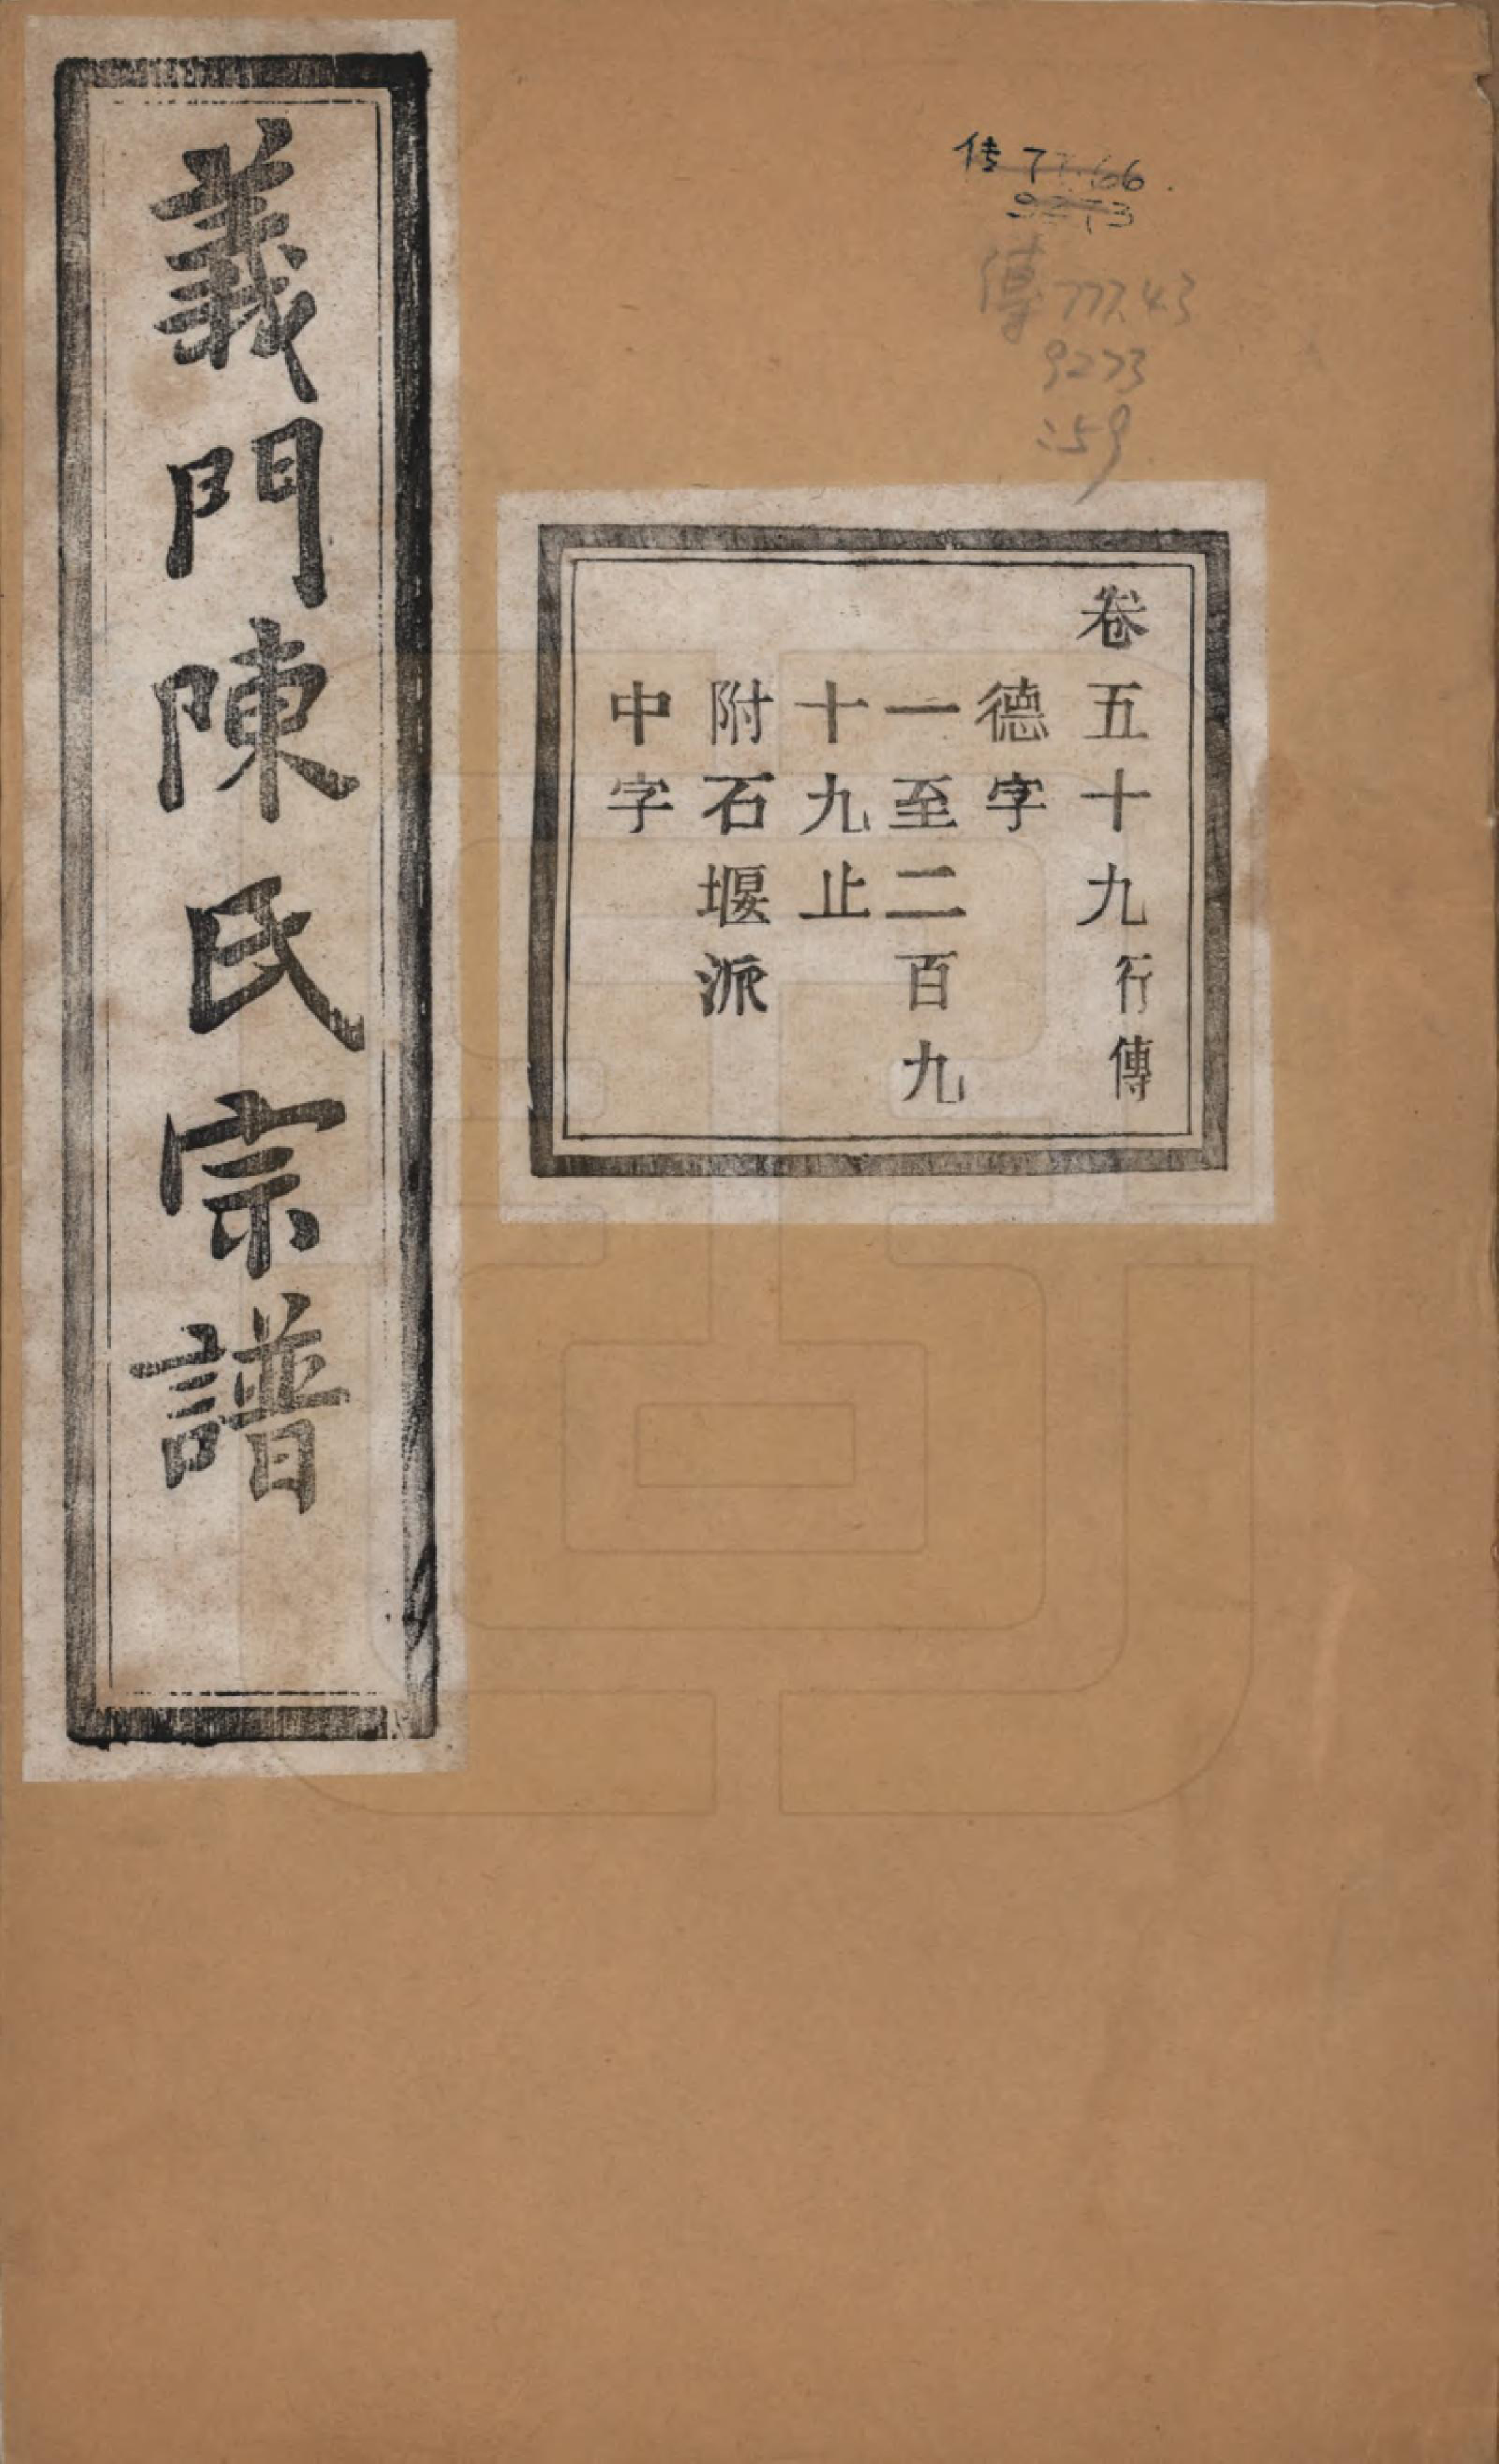 義門陳氏宗譜
卷五十九行傳
德字
一至二百九
十九止
附石堰派
中字
傳777.43
9273
:59